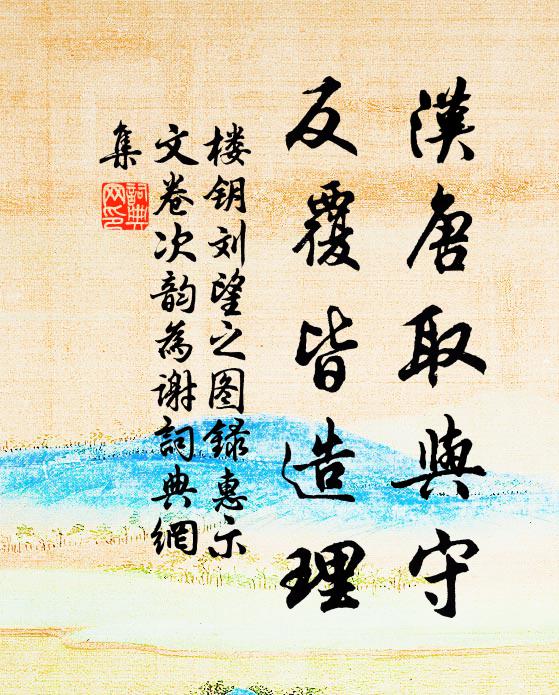 漢唐取與守
反覆皆造理
楼钥刘望之图録惠示
文卷次韵為谢詞典網
集
詞典
网印